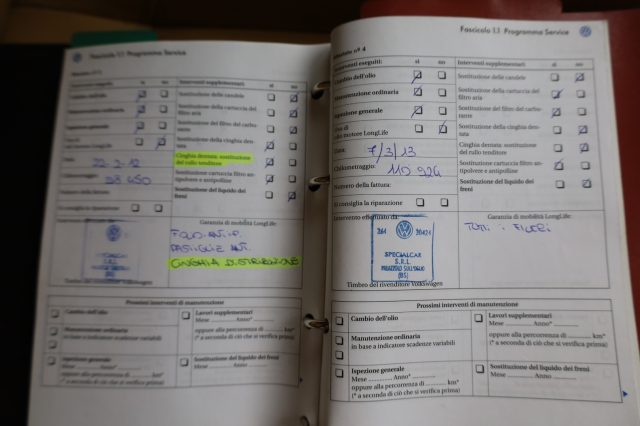 Fascicolo 1.1 Programma Service
Interventi eseguiti: sì no
Interventi supplementari: sì no
Cambio dell'olio
Sostituzione delle candele
Manutenzione ordinaria
Sostituzione della cartuccia del
filtro aria
Ispezione generale
Sostituzione del filtro del carbu-
rante
Sostituzione della cinghia den-
tata
Data: 22-2-12
Cinghia dentata: sostituzione
del rullo tenditore
Chilometraggio:
Sostituzione cartuccia filtro an-
tipolvere e antipolline
Numero della fattura:
Sostituzione del liquido dei
freni
Si consiglia la riparazione
Garanzia di mobilità LongLife
PASTIGLIE ANT.
CINGHIA DISTRIBUZIONE
Timbro del rivenditore Volkswagen
Prossimi interventi di manutenzione
Cambio dell'olio
Lavori supplementari
Mese Anno*
Manutenzione ordinaria
in base a indicatore scadenze variabili
oppure alla percorrenza di km*
(* a seconda di ciò che si verifica prima)
Ispezione generale
Mese Anno*
oppure alla percorrenza di km*
(* a seconda di ciò che si verifica prima)
Sostituzione del liquido dei freni
Mese Anno
Fascicolo 1.1 Programma Service
nº 4
Interventi eseguiti: sì no
Interventi supplementari: sì no
Cambio dell'olio
Sostituzione delle candele
Manutenzione ordinaria
Sostituzione della cartuccia del
filtro aria
Ispezione generale
Sostituzione del filtro del carbu-
rante
olio motore LongLife
Sostituzione della cinghia den-
tata
Data: 7/3/13
Cinghia dentata: sostituzione
del rullo tenditore
Chilometraggio: 110 924
Sostituzione cartuccia filtro an-
tipolvere e antipolline
Numero della fattura:
Sostituzione del liquido dei
freni
Si consiglia la riparazione
Intervento effettuato da:
Garanzia di mobilità LongLife
264 20426
TUTTI I FILTRI
SPECIALCAR
S.R.L.
PALAZZOLO SULL'OGLIO
(BS)
Timbro del rivenditore Volkswagen
Prossimi interventi di manutenzione
Cambio dell'olio
Lavori supplementari
Mese Anno*
Manutenzione ordinaria
in base a indicatore scadenze variabili
oppure alla percorrenza di km*
(* a seconda di ciò che si verifica prima)
Ispezione generale
Mese Anno*
oppure alla percorrenza di km*
(* a seconda di ciò che si verifica prima)
Sostituzione del liquido dei freni
Mese Anno